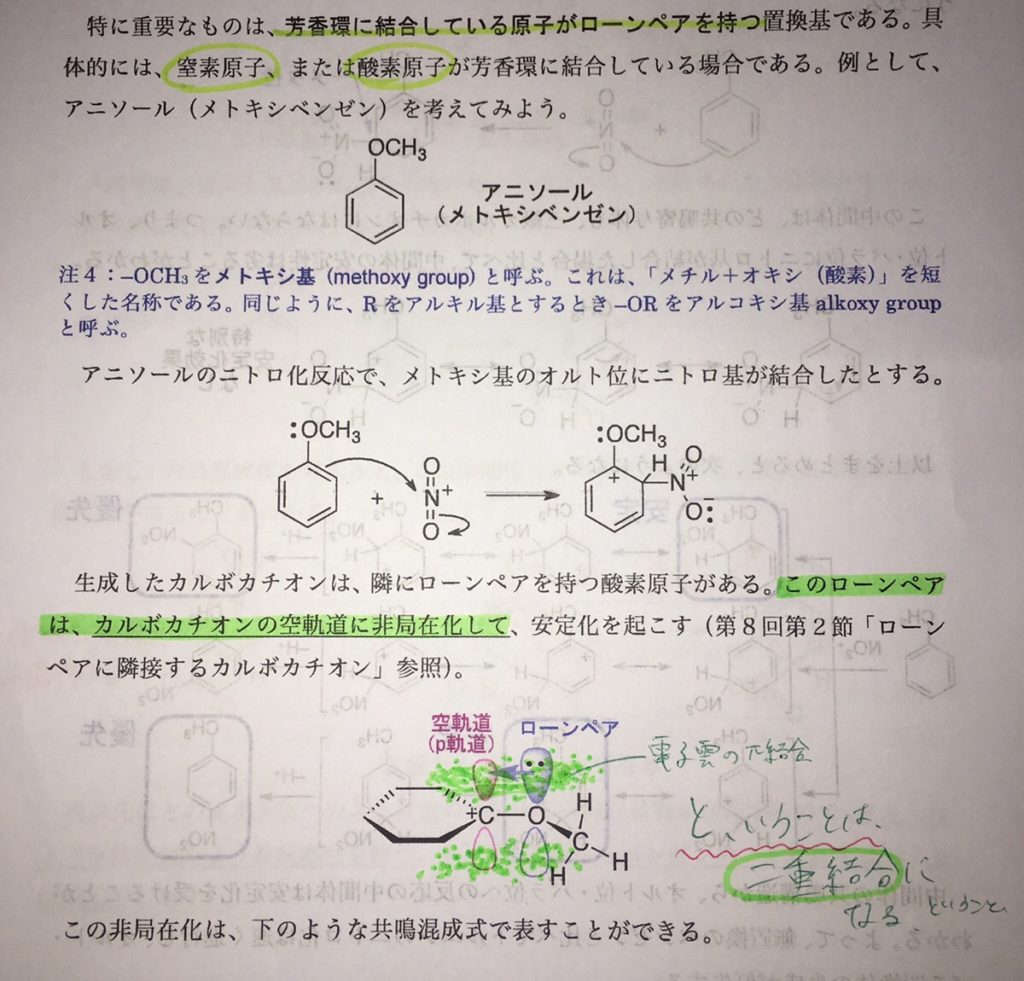 特に重要なものは、芳香環に結合している原子がローンペアを持つ置換基である。具
体的には、窒素原子、または酸素原子が芳香環に結合している場合である。例として、
アニソール（メトキシベンゼン）を考えてみよう。
OCH₃
アニソール
（メトキシベンゼン）
注４：–OCH₃をメトキシ基 (methoxy group) と呼ぶ。これは、「メチル＋オキシ（酸素）」を短
くした名称である。同じように、Rをアルキル基とするとき–ORをアルコキシ基alkoxy group
と呼ぶ。
アニソールのニトロ化反応で、メトキシ基のオルト位にニトロ基が結合したとする。
:OCH₃
+
O
N+
O
:OCH₃
+
H
O
N+
O:−
生成したカルボカチオンは、隣にローンペアを持つ酸素原子がある。このローンペア
は、カルボカチオンの空軌道に非局在化して、安定化を起こす（第８回第２節「ローン
ペアに隣接するカルボカチオン」参照）。
空軌道
(p軌道)
ローンペア
電子雲のπ結合
+C
O
H
C
H
H
と、いうことは、
二重結合に
なる ということ
この非局在化は、下のような共鳴混成式で表すことができる。